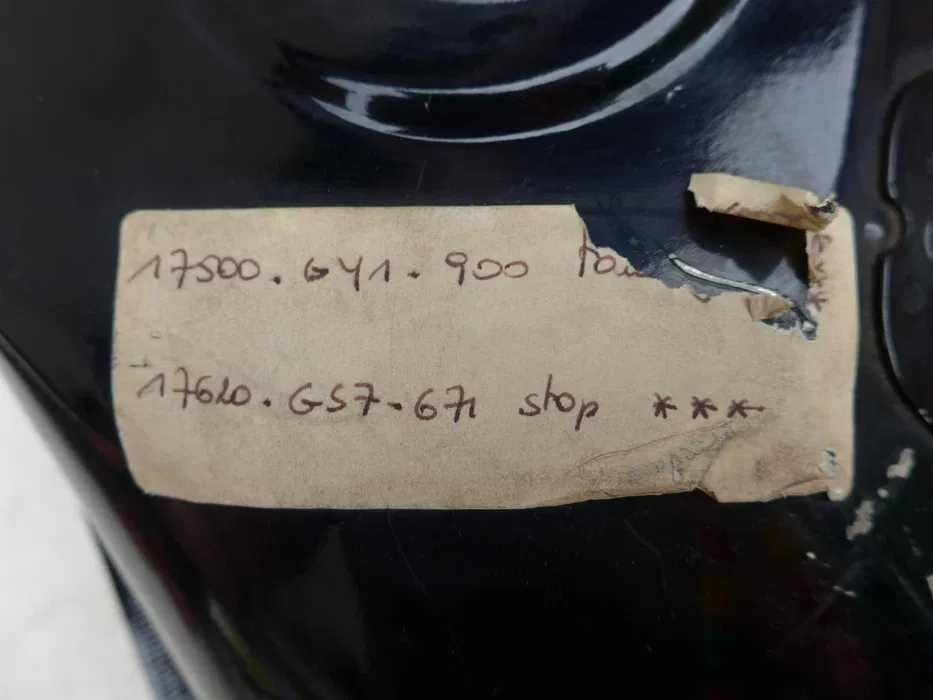 17500.GY1.900
17620.GS7-671 stop ***